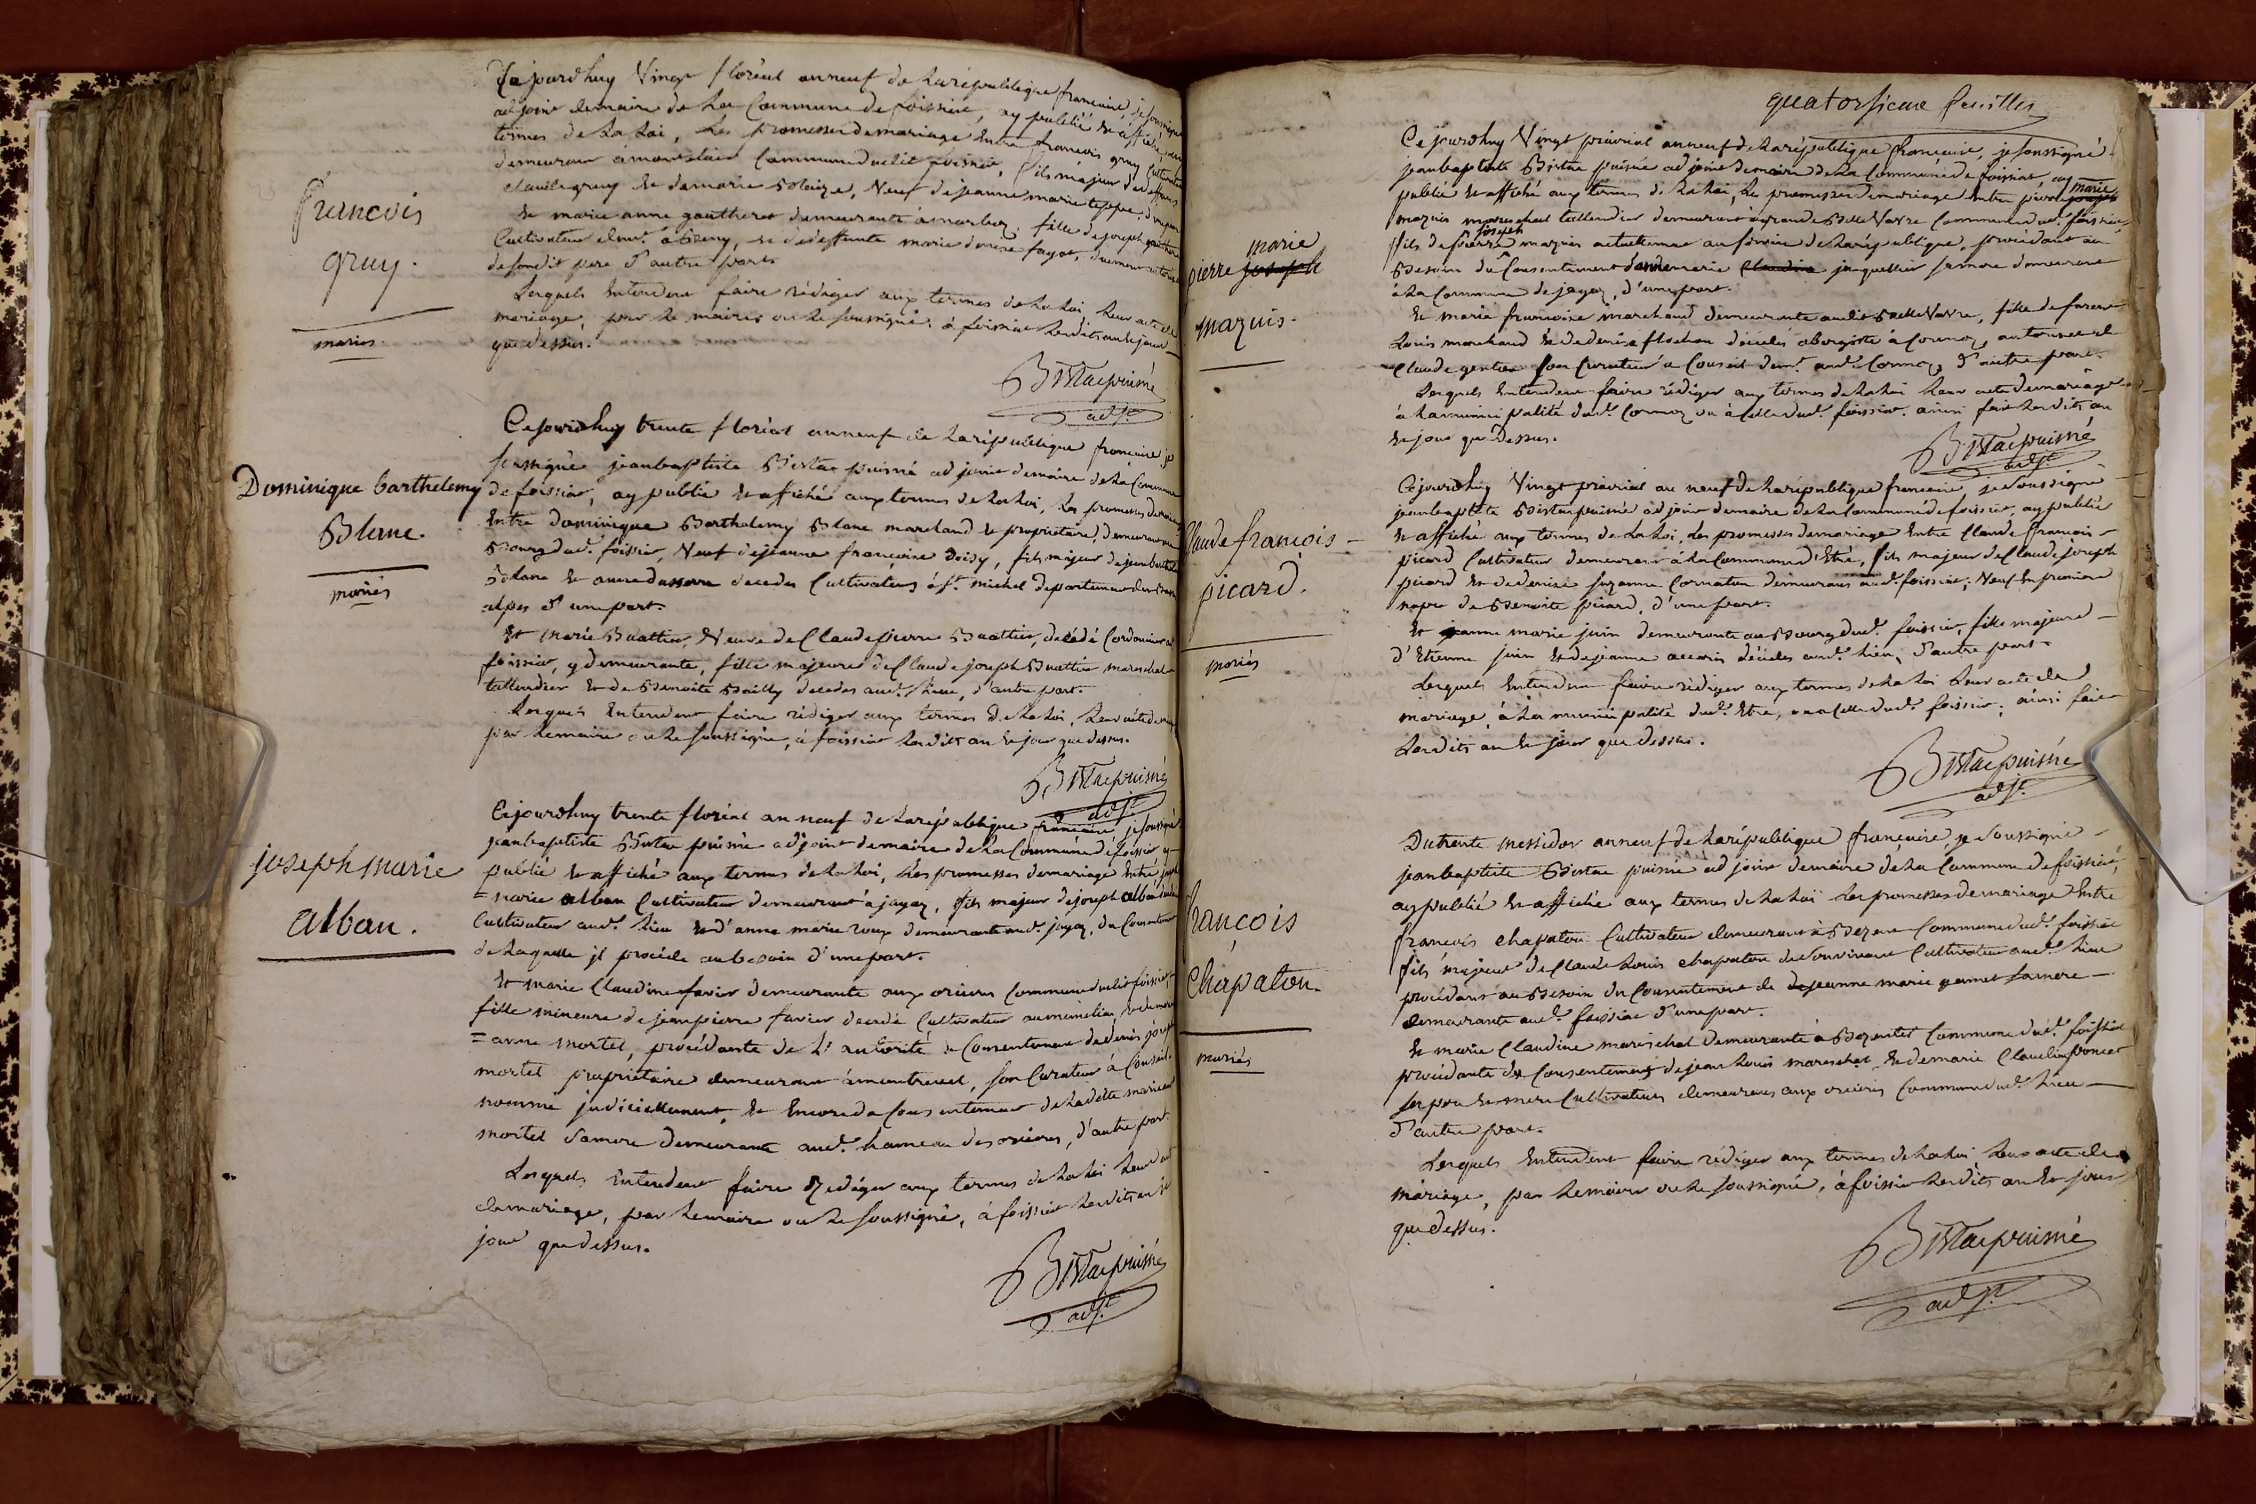 Cejourdhuy Vingt floréal an neuf de la république francaise, je soussigné
adjoint du maire de la Commune de foissiat, ay publié et affiché, aux
termes de la loi, les promesses de mariage entre francois gruy Cultivateur
demeurant à Commune dudit foissiat, fils majeur des deffunts
Claude gruy et de marie Bolaize, Veuf de jeanne marie teppe, d'une part
Et marie anne gautheret demeurante à marboz, fille de joseph gautheret
Cultivateur demt. à Beny, et de deffunte marie denise fayot, demeurante
de son dit pere d'autre part.
Lesquels entendent faire rédiger aux termes de la loi leur acte de
mariage, par le maire ou le soussigné, à foissiat lesdits an et jour
que dessus.
francois
gruy.
mariés
Bistac puisné
adjt.
Cejourdhuy trente floréal an neuf de la république francaise je
soussigné jeanbaptiste Bistac puisné adjoint du maire de la Commune
de foissiat, ay publié et affiché aux termes de la loi, les promesses de mariage
Entre dominique Barthelemy Blanc marchand et propriétaire demeurant au
Bourg dud. foissiat, Veuf de jeanne francoise Doisy, fils majeur de jean barthel
Blanc et anne dassore decedes Cultivateurs à St. michel departement des Basses
alpes d'une part.
Dominique barthelemy
Blanc.
mariés
Et marie Buattier, Veuve de Claude pierre Buattier, décédé Cordonnier à
foissiat, y demeurante, fille majeure de Claude joseph Buattier mareschal
tallendier et de Benoite Bailly decedes aud. lieu, d'autre part.
Lesquels entendent faire rédiger aux termes de la loi, leur acte de mariage
par le maire ou le soussigné, à foissiat lesdits an et jour que dessus.
Bistac puisné
adjt.
Cejourdhuy trente floréal an neuf de la république francaise, je soussigné
jeanbaptiste Bistac puisné adjoint du maire de la Commune de foissiat ay
publié et affiché aux termes de la loi, les promesses de mariage entre joseph
=marie alban Cultivateur demeurant à jayaz, fils majeur de joseph alban
Cultivateur aud. lieu et d'anne marie roux demeurante aud. jayaz, du Consentement
de laquelle il procéde au besoin d'une part.
joseph marie
alban.
Et marie Claudine favier demeurante aux orcieres Commune dudit foissiat,
fille mineure de jeanpierre favier decedé Cultivateur et de marie
=anne mortel, procédante de l'autorité et Consentement de denis joseph
mortel propriétaire demeurant à montrevel, son Curateur à Conseil
nommé judiciellement, et encore du Consentement de ladite marieanne
mortel sa mere demeurante aud. hameau des orcieres, d'autre part.
Lesquels entendent faire rediger aux termes de la loi leur acte
de mariage, par le maire ou le soussigné, à foissiat lesdits an et
jour que dessus.
Bistac puisné
adjt.
quatorsieme feuillet
Ce jourdhuy Vingt prairial an neuf de la république francaise, je soussigné
jeanbaptiste Bistac puisné adjoint du maire de la Commune de foissiat ay
publié et affiché aux termes de la loi, les promesses de mariage entre pierre marie joseph
mazuis mareschal tallendier demeurant à grande Belle Vavre Commune dud. foissiat,
fils de pierre joseph mazuis actuellement au service de la république, procédant au
Besoin du Consentement d'anne marie Claudine jacquettier sa mere demeurante
à la Commune de jayaz, d'une part.
pierre joseph marie
mazuis.
Et marie francoise marchand demeurante audit Belle Vavre, fille de furent
Louis marchand et de denise flochon décédés à Cormoz, autorisée de
Claude gentier son Curateur à Conseil demt. aud. Cormoz, d'autre part.
Lesquels entendent faire rédiger aux termes de la loi leur acte de mariage
à la municipalité dud. Cormoz ou à Celle dud. foissiat. ainsi fait lesdits an
et jour que dessus.
Bistac puisné
adjt.
Cejourdhuy Vingt prairial an neuf de la république francaise, je soussigné
jeanbaptiste Bistac puisné adjoint du maire de la Commune de foissiat, ay publié
et affiché aux termes de la loi, les promesses de mariage entre Claude francois
picard Cultivateur demeurant à la Commune d'Etré, fils majeur de Claude joseph
picard et de denise suzanne Cornaton demeurants aud. foissiat; Veuf en premiere
nopce de Benoite picard, d'une part.
Claude francois
picard.
mariés
Et jeanne marie juin demeurante au Bourg dud. foissiat, fille majeure
d'Etienne juin et de jeanne accarin décédes aud. lieu, d'autre part.
Lesquels entendent faire rédiger aux termes de la loi leur acte de
mariage, à la municipalité dud. Etre, ou a Celle dud. foissiat; ainsi fait
lesdits an et jour que dessus.
Bistac puisné
adjt.
Du trente messidor an neuf de la république française, je soussigné
jeanbaptiste Bistac puisné adjoint du maire de la Commune de foissiat,
ay publié et affiché aux termes de la loi les promesses de mariage entre
francois chapaton Cultivateur demeurant à Bezane Commune dud. foissiat
fils majeur de Claude Louis chapaton de son vivant Cultivateur aud. lieu
procédant au Besoin du Consentement de de jeanne marie gannet sa mere
demeurante aud. foissiat d'une part.
francois
Chapaton.
mariés
Et marie Claudine mareschal demeurante à Bezentet Commune dud. foissiat
procédante du Consentement de jean Louis mareschal et de marie Claudine poncet
ses pere et mere Cultivateurs demeurans aux orcieres Commune dud. lieu
d'autre part.
Lesquels entendent faire rédiger aux termes de la loi leur acte de
mariage, par le maire ou le soussigné, à foissiat lesdits an et jour
que dessus.
Bistac puisné
adjt.